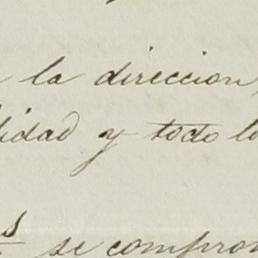 la direccion,
lidad y todo lo
s se comprom